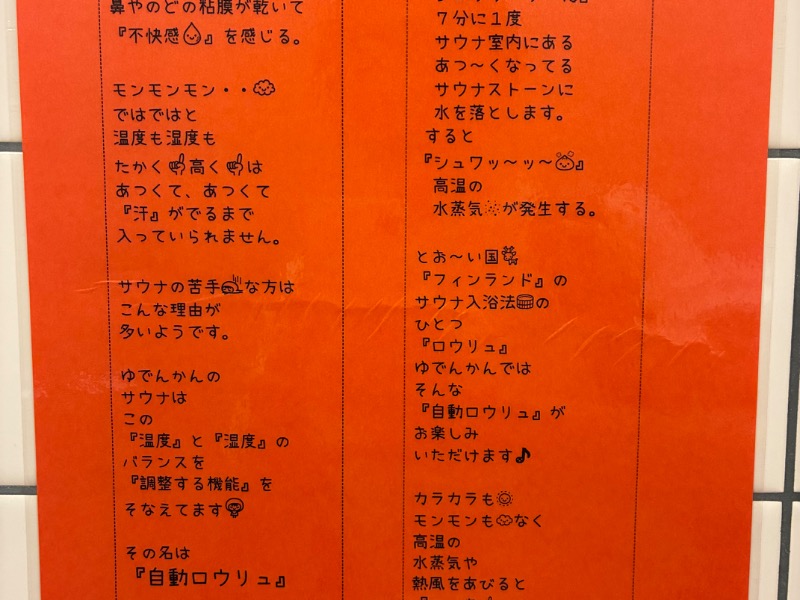 鼻やのどの粘膜が乾いて
『不快感』を感じる。
モンモンモン・・
ではではと
温度も湿度も
たかく高くは
あつくて、あつくて
『汗』がでるまで
入っていられません。
サウナの苦手な方は
こんな理由が
多いようです。
ゆでんかんの
サウナは
この
『温度』と『湿度』の
バランスを
『調整する機能』を
そなえてます
その名は
『自動ロウリュ』
7分に1度
サウナ室内にある
あつ〜くなってる
サウナストーンに
水を落とします。
すると
『シュワッ〜ッ〜』
高温の
水蒸気が発生する。
とお〜い国
『フィンランド』の
サウナ入浴法の
ひとつ
『ロウリュ』
ゆでんかんでは
そんな
『自動ロウリュ』が
お楽しみ
いただけます♪
カラカラも
モンモンもなく
高温の
水蒸気や
熱風をあびると